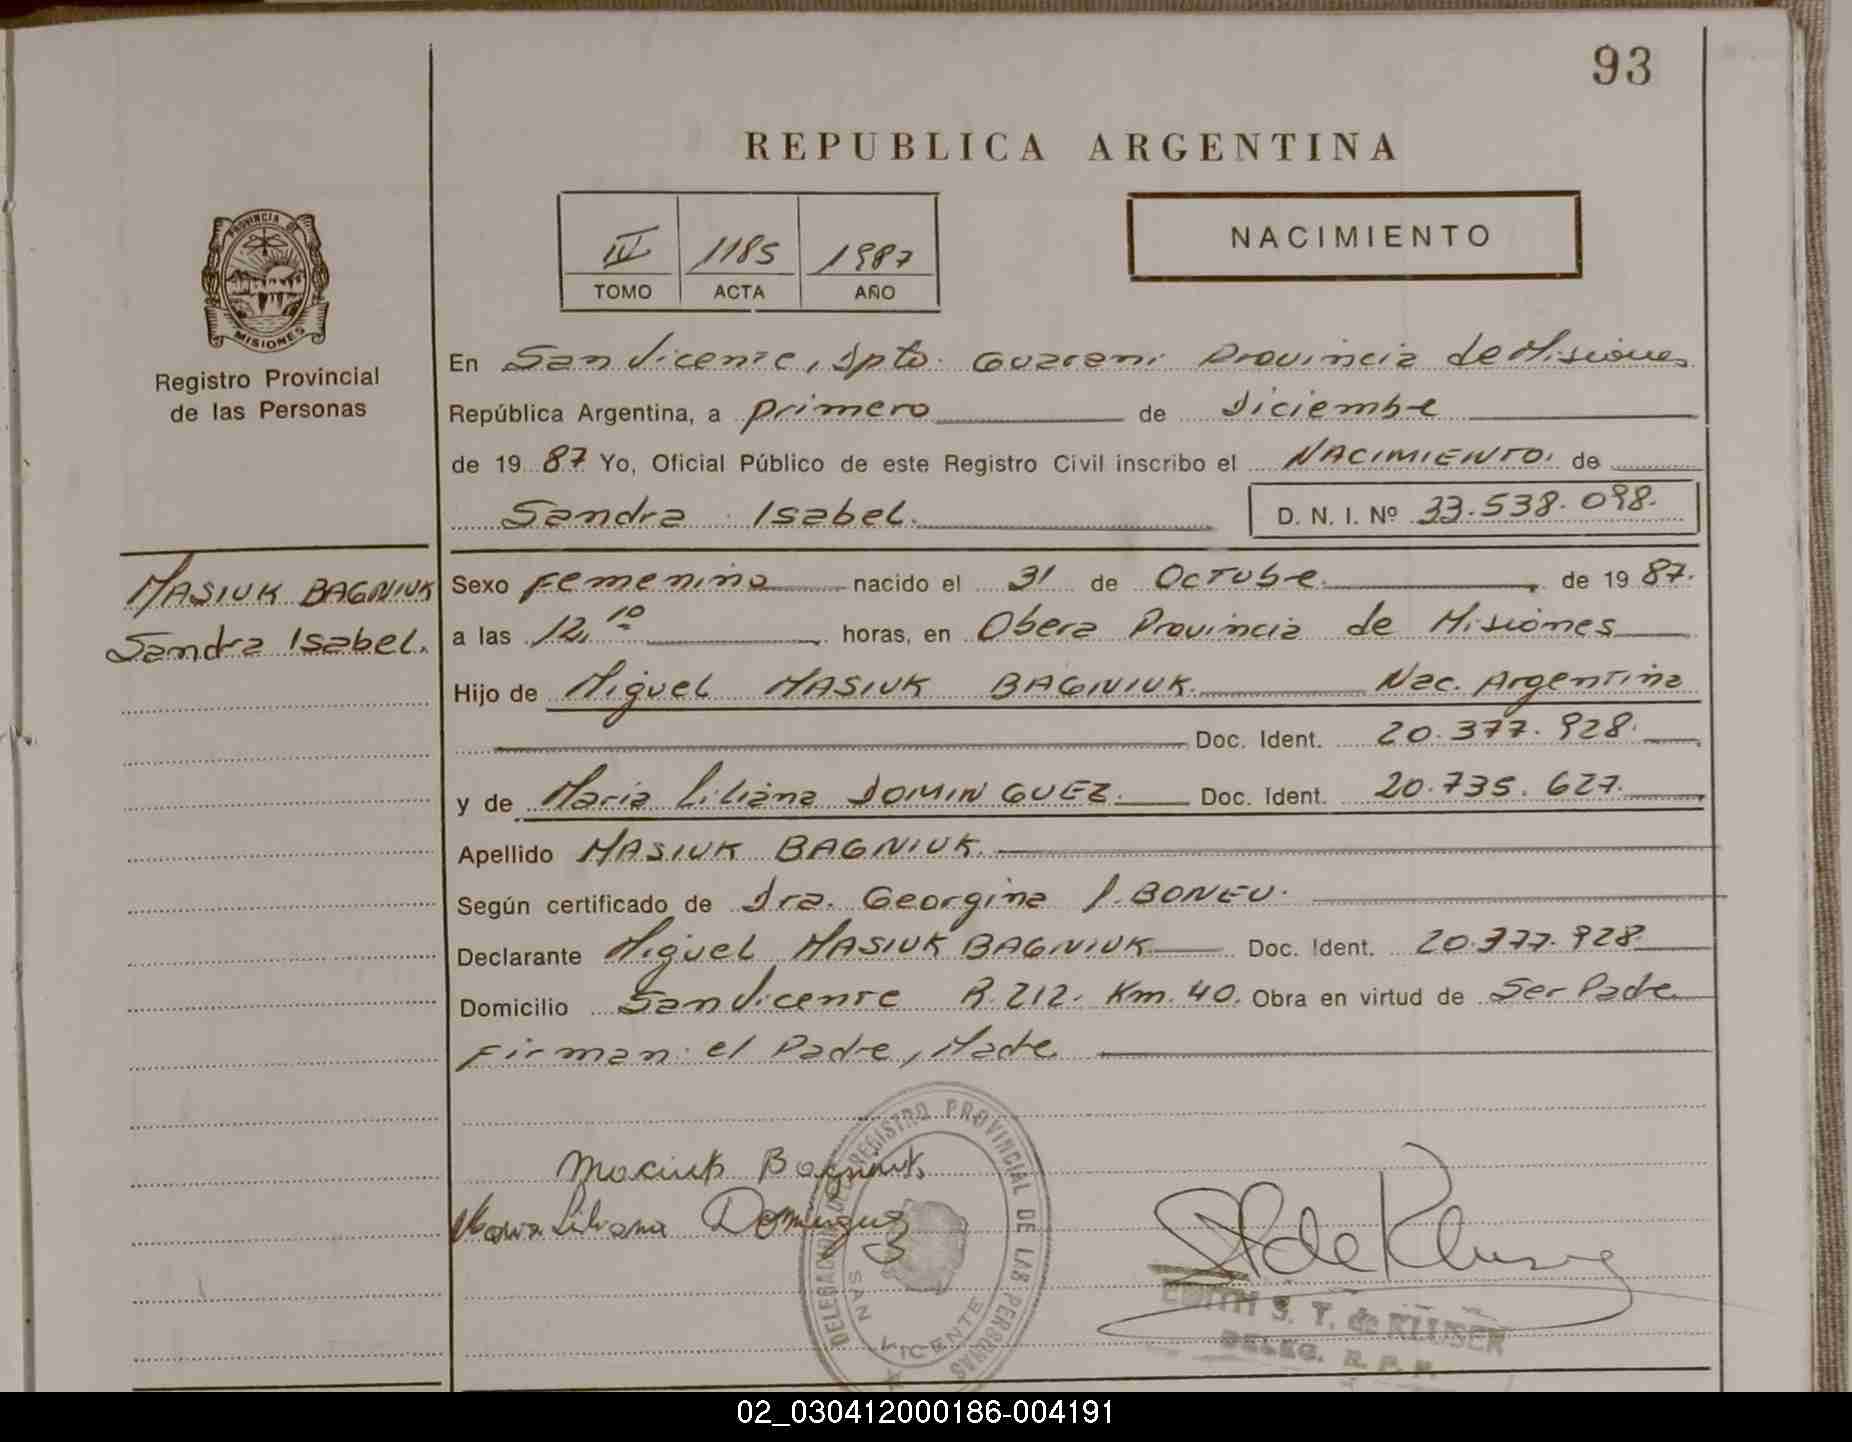 93
REPUBLICA ARGENTINA
IV 1185 1987
TOMO ACTA AÑO
NACIMIENTO
PROVINCIA DE
MISIONES
Registro Provincial
de las Personas
En San Vicente, Dpto. Guarani Provincia de Misiones
República Argentina, a primero de Diciembre
de 1987 Yo, Oficial Público de este Registro Civil inscribo el NACIMIENTO. de
Sandra Isabel. D. N. I. Nº 33.538.098.
MASIUK BAGNIUK
Sandra Isabel.
Sexo Femenino nacido el 31 de Octubre de 1987.
a las 12,10 horas, en Obera Provincia de Misiones
Hijo de Miguel MASIUK BAGNIUK. Nac. Argentina
Doc. Ident. 20.377.928.
y de Maria Liliana DOMINGUEZ. Doc. Ident. 20.735.627.
Apellido MASIUK BAGNIUK.
Según certificado de Dra. Georgina I. BONEU.
Declarante Miguel MASIUK BAGNIUK Doc. Ident. 20.377.928
Domicilio San Vicente R. 212. Km. 40. Obra en virtud de Ser Padre
Firman: el Padre, Madre
Masiuk Bagniuk
Maria Liliana Dominguez
DELEGACION DEL REGISTRO PROVINCIAL DE LAS PERSONAS
SAN VICENTE
de Kluser
EDITH S. T. de KLUSER
DELEG. R. P. P.
02_030412000186-004191